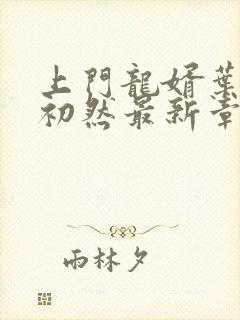 上門龍婿葉
初然最新章
雨林夕